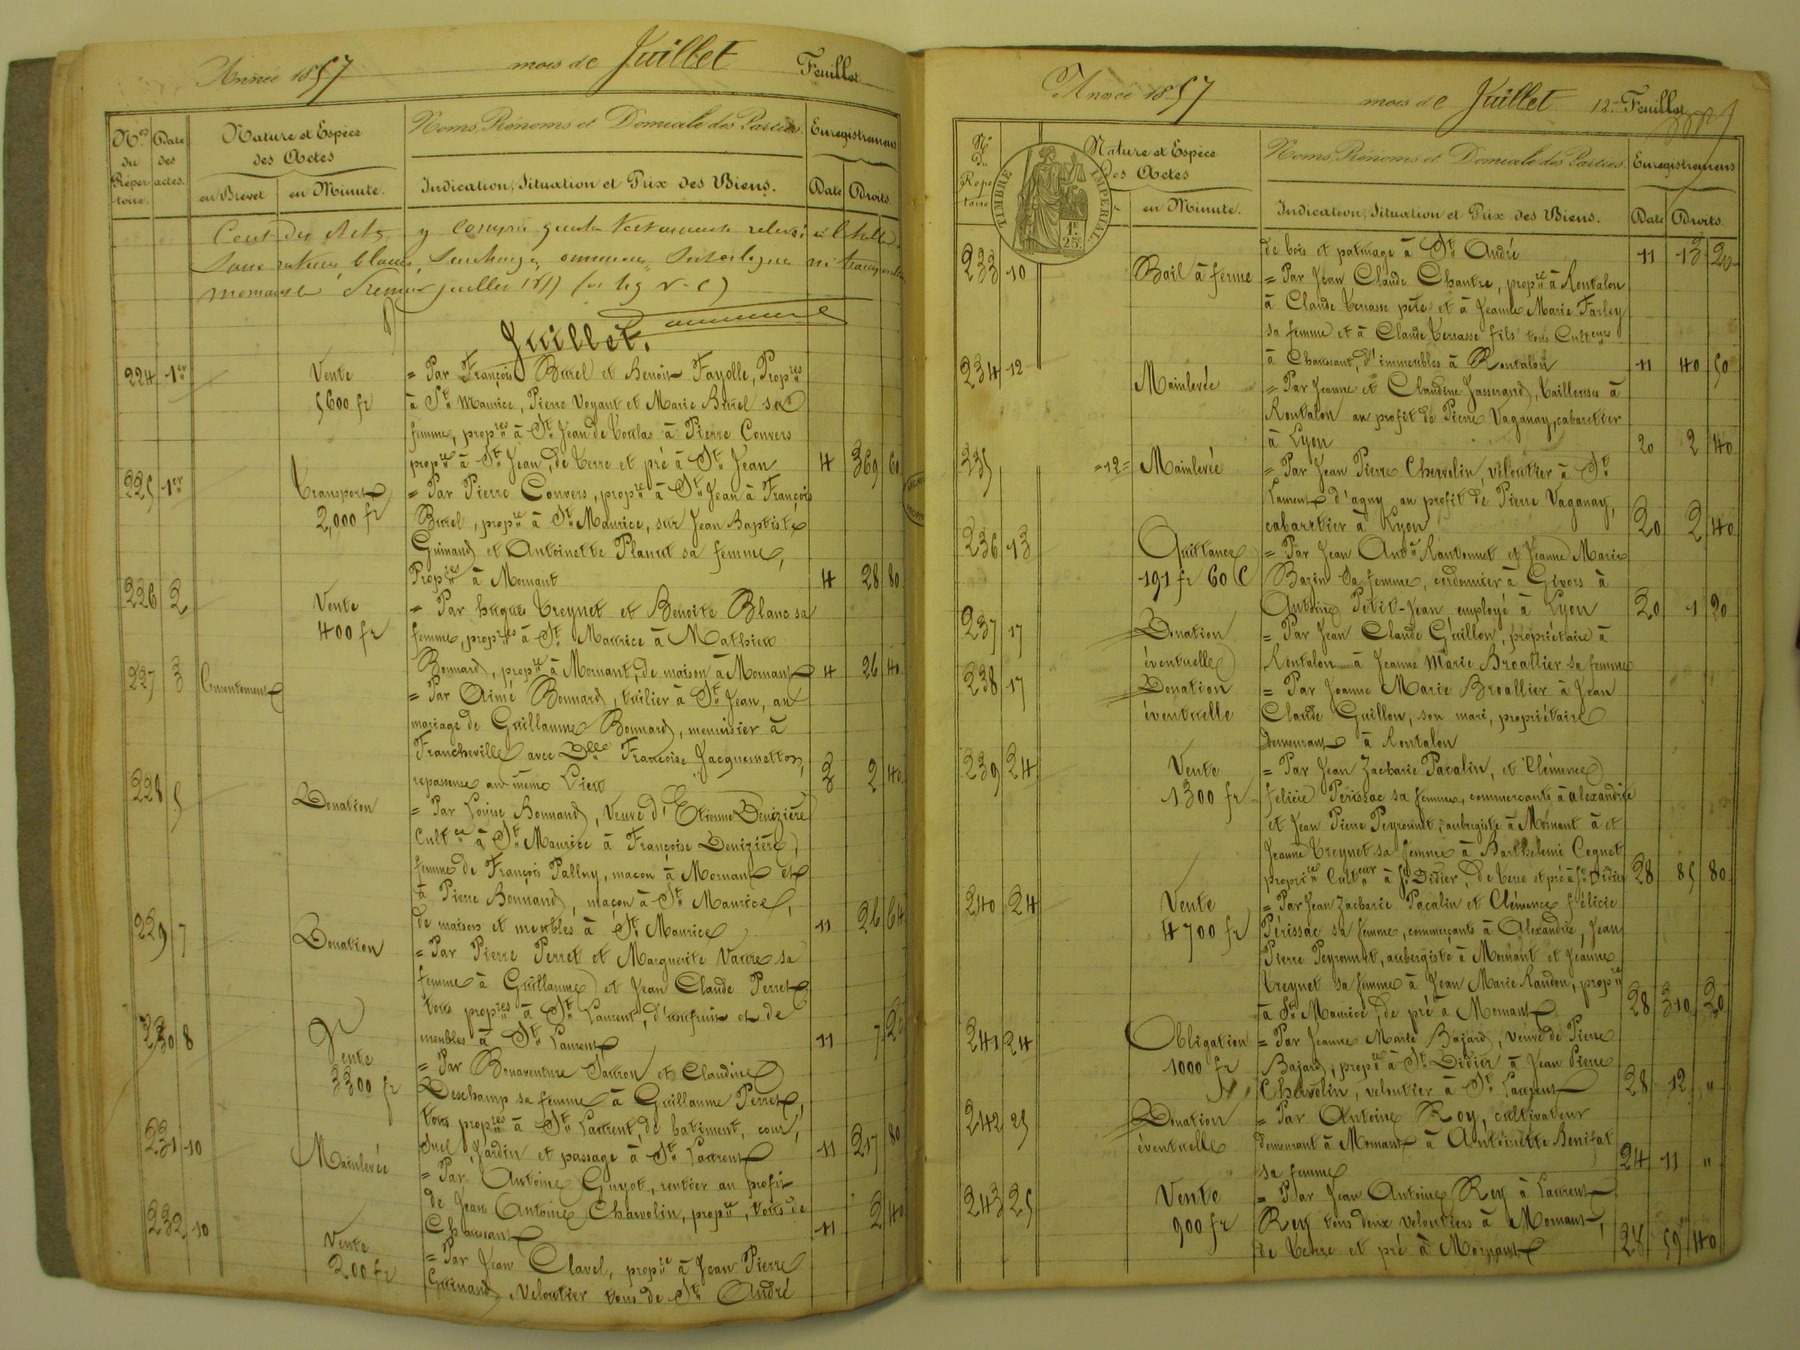 Année 1857 mois de Juillet Feuillet
Nos du Répertoire. Date des actes. Nature et Espèce des Actes Noms, Prénoms et Domicile des Parties. Enregistrement
en Brevet en Minute. Indication, Situation et Prix des Biens. Date Droits.
Juillet.
224 1er Vente = Par François Burel et Benoit Fayolle, Propres
5600 fr à St Maurice, Pierre Voyant et Marie Burel sa
femme, propres à St Jean de Touslas à Pierre Convers
propre à St Jean, de terre et pré à St Jean 4 369 60
225 1er Transport = Par Pierre Convers, propre à St Jean à François
2,000 fr Burel, propre à St Maurice, sur Jean Baptiste
Guinand et Antoinette Planut sa femme,
Propres à Mornant 4 28 80
226 2 Vente = Par hugues Treynet et Benoite Blanc sa
400 fr femme, propres à St Maurice à Mathieu
Bonnard, propre à Mornant, de maison à Mornant 4 26 40
227 3 Consentement = Par Aimé Bonnard, tuilier à St Jean, au
mariage de Guillaume Bonnard, menuisier à
Francheville avec Dlle Francoise Jacquemetton,
repasseuse au même Lieu 3 2 40
228 5 Donation = Par Louise Bonnand, Veuve d'Etienne Denizière
Cultce à St Maurice à Françoise Denizière,
femme de François Palluy, macon à Mornant et
à Pierre Bonnand, maçon à St Maurice,
de maison et meubles à St Maurice 11 26 64
229 7 Donation = Par Pierre Perret et Marguerite Vavre sa
femme à Guillaume et Jean Claude Perret
tous propres à St Laurent, d'usufruit et de
meubles à St Laurent 11 7
230 8 Vente = Par Bonaventure et Claudine
3300 fr Deschamp sa femme à Guillaume Perret,
tous propres à St Laurent, de batiment, cour,
Jardin et passage à St Laurent 11 217 80
231 10 Mainlevée = Par Antoine Guyot, rentier au profit
de Jean Antoine Charvolin, propre, tous de
Chaussant 11 2 40
232 10 Vente = Par Jean Clavel, propre à Jean Pierre
200 fr Guinand, Veloutier tous de St André
Année 1857 mois de Juillet 12e Feuillet
No Du Repertoire Nature et Espèce Des Actes Noms, Prénoms et Domicile des Parties. Enregistremens
en Minute. Indication, Situation et Prix des Biens. Date Droits.
TIMBRE IMPÉRIAL 1f. 25c.
de bois et patinage à St André 11 13 20
233 10 Bail à ferme = Par Jean Claude Chantre, propre à Rontalon
à Claude Terrasse père et à Jeanne Marie Farley
sa femme et à Claude Terrasse fils tous Culteurs
à Chaussant, d'immeubles à Rontalon 11 40 50
234 12 Mainlevée = Par Jeanne et Claudine Jasserand, tailleuses à
Rontalon au profit de Pierre Vaganay, cabaretier
à Lyon 20 2 40
235 =12= Mainlevée = Par Jean Pierre Chervolin, veloutier à St
Laurent d'agny au profit de Pierre Vaganay,
cabarttier à Lyon 20 2 40
236 13 Quittance = Par Jean Antne Rantonnet et Jeanne Marie
191 fr 60 C Bazin sa femme, cordonnier à Givors à
Antoine Petit-Jean employé à Lyon 20 1 20
237 17 Donation = Par Jean Claude Guillon, propriétaire à
éventuelle Rontalon à Jeanne Marie Broallier sa femme
238 17 Donation = Par Jeanne Marie Broallier à Jean
éventuelle Claude Guillon, son mari, propriétaire
demeurant à Rontalon
239 24 Vente = Par Jean Zacharie Pacalin, et Clémence
1300 fr félicie Perissac sa femme, commercants à alexandrie
et Jean Pierre Peyronnet, aubergiste à Mornant à et
Jeanne Treynet sa femme à Barthelemi Cognet
propre Culteur à St Didier, de terre et pré à St Didier 28 85 80
240 24 Vente = Par Jean Zacharie Pacalin et Clémence félicie
4700 fr Périssac sa femme, commerçants à Alexandrie, Jean
Pierre Peyronnet, aubergiste à Mornant et Jeanne
Treynet sa femme à Jean Marie Randon, propre
à St Maurice, de pré à Mornant 28 310 20
241 24 Obligation = Par Jeanne Marie Bajard, veuve de Pierre
1000 fr Bajard, propre à St Didier à Jean Pierre
Chervolin, veloutier à St Laurent 28 12 "
242 25 Donation = Par Antoine Roy, cultivateur
éventuelle demeurant à Mornant à Antoinette Benifat
sa femme 24 11 "
243 25 Vente = Par Jean Antoine Rey à Laurent
900 fr Rey tous deux veloutiers à Mornant,
de terre et pré à Mornant 28 59 40